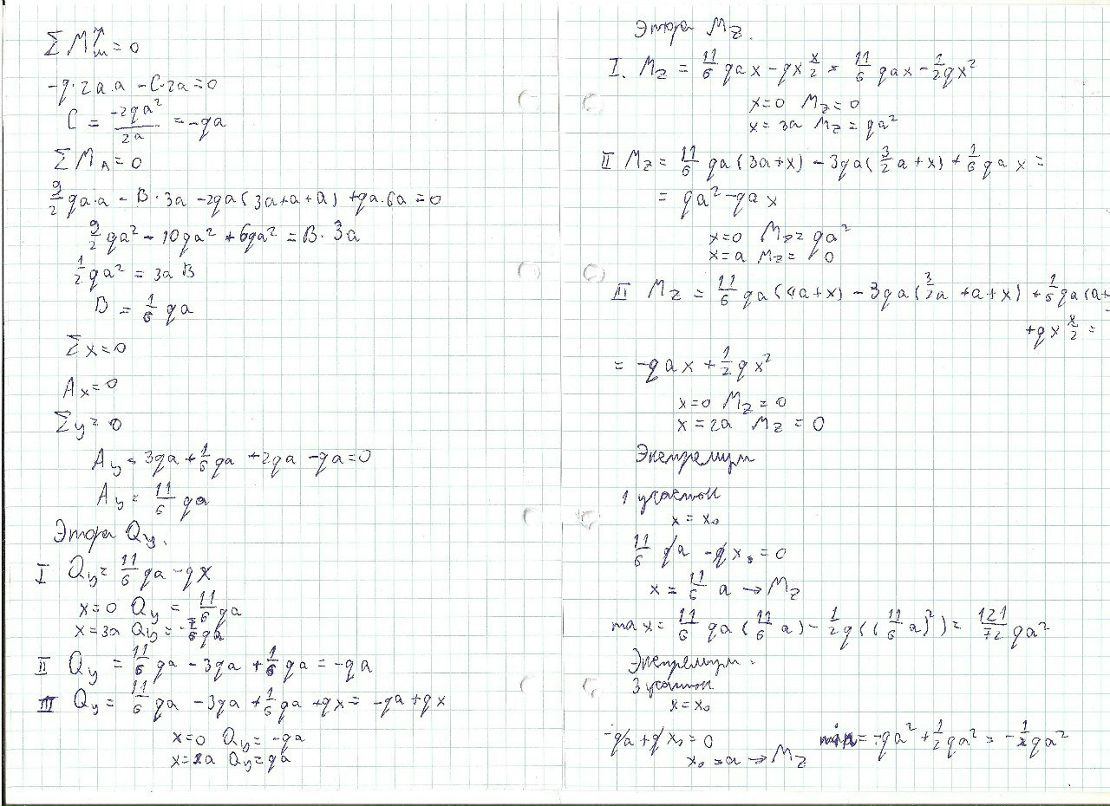 ΣM ш = 0
-q·2a·a - C·2a = 0
C = -2qa²/2a = -qa
ΣM_A = 0
9/2 qa·a - B·3a - 2qa(3a+a+a) + qa·6a = 0
9/2 qa² - 10qa² + 6qa² = B·3a
1/2 qa² = 3a B
B = 1/6 qa
Σx = 0
Ax = 0
Σy = 0
Ay - 3qa + 1/6 qa + 2qa - qa = 0
Ay = 11/6 qa
Эпюра Qy.
I Qy = 11/6 qa - qx
x=0 Qy = 11/6 qa
x=3a Qy = -7/6 qa
II Qy = 11/6 qa - 3qa + 1/6 qa = -qa
III Qy = 11/6 qa - 3qa + 1/6 qa + qx = -qa + qx
x=0 Qy = -qa
x=2a Qy = qa
Эпюра Mz.
I. Mz = 11/6 qax - qx x/2 = 11/6 qax - 1/2 qx²
x=0 Mz = 0
x=3a Mz = qa²
II Mz = 11/6 qa(3a+x) - 3qa(3/2 a+x) + 1/6 qa x =
= qa² - qax
x=0 Mz = qa²
x=a Mz = 0
III Mz = 11/6 qa(4a+x) - 3qa(3/2 a+a+x) + 1/6 qa(a+
+qx x/2 =
= -qax + 1/2 qx²
x=0 Mz = 0
x=2a Mz = 0
Экстремум
1 участок
x = x₀
11/6 qa - qx₀ = 0
x = 11/6 a → Mz
max = 11/6 qa(11/6 a) - 1/2 q((11/6 a)²) = 121/72 qa²
Экстремум.
3 участок
x = x₀
-qa + qx₀ = 0
x₀ = a → Mz
min = -qa² + 1/2 qa² = -1/2 qa²